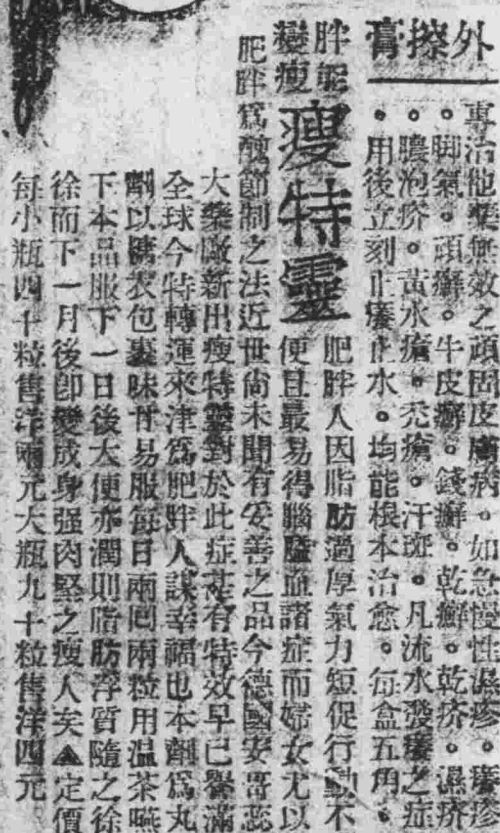 外擦膏
專治他藥無效之頑固皮膚病。如急慢性濕疹。癢疹
。脚氣。頭癬。牛皮癬。錢癬。乾癬。乾疥。濕疥
。膿泡疥。黃水瘡。禿瘡。汗斑。凡流水發癢之症
。用後立刻止癢止水。均能根本治愈。每盒五角。
胖能
變瘦
瘦特靈
肥胖人因脂肪過厚氣力短促行動不
便且最易得腦膓血諸症而婦女尤以
肥胖爲醜節制之法近世尙未聞有妥善之品今德國安哥蕊
大藥廠新出瘦特靈對於此症茋有特效早已譽滿
全球今特轉運來津爲肥胖人謀幸福也本劑爲丸
劑以糖衣包裹味甘易服每日兩回兩粒用温茶嚥
下本品服下一日後大便亦潤則脂肪浮質隨之徐
徐而下一月後卽變成身强肉緊之瘦人矣▲定價
每小瓶四十粒售洋兩元大瓶九十粒售洋四元